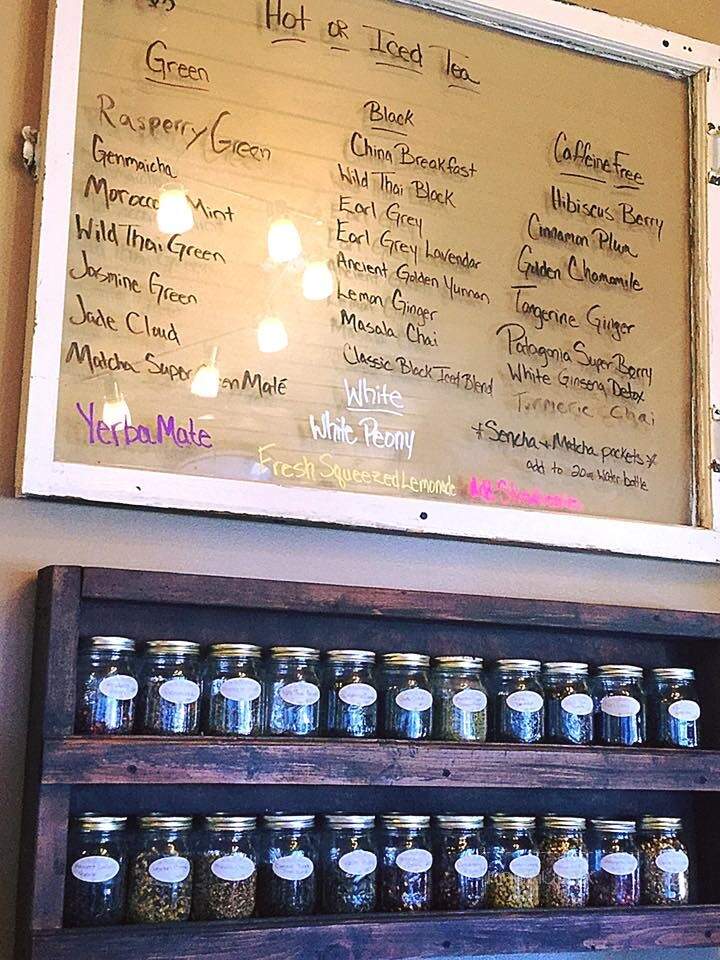 Hot or Iced Tea
Green
Rasperry Green
Genmaicha
Moroccan Mint
Wild Thai Green
Jasmine Green
Jade Cloud
Matcha Super Green Maté
Yerba Mate
Black
China Breakfast
Wild Thai Black
Earl Grey
Earl Grey Lavendar
Ancient Golden Yunnan
Lemon Ginger
Masala Chai
Classic Black Iced Blend
White
White Peony
Fresh Squeezed Lemonade
Caffeine Free
Hibiscus Berry
Cinnamon Plum
Golden Chamomile
Tangerine Ginger
Patagonia Super Berry
White Ginseng Detox
Turmeric Chai
*Sencha + Matcha packets*
add to 20oz water bottle